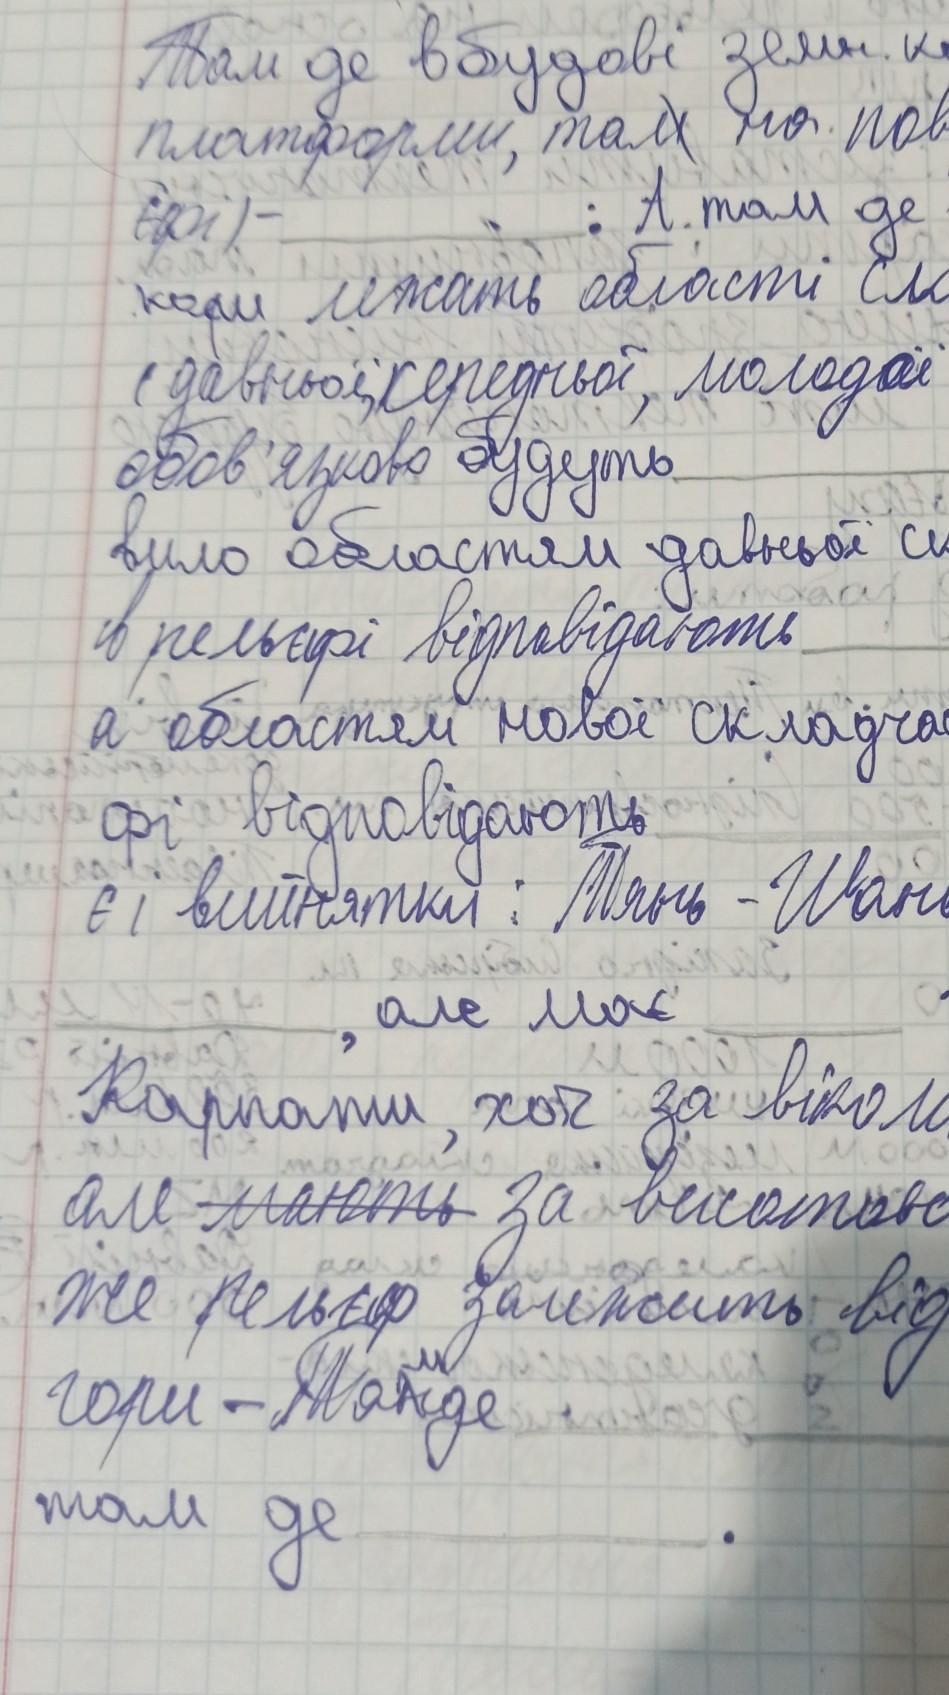 Там де в будові земн. к
платформи, там на. пов
фі) - : А. там де
кори лежать області скл
(давньої, середньої, молодої
обов'язково будуть
вило областям давньої ск
в рельєфі відповідають
а областям нової складча
фі відповідають
є і вийнятки : Тянь - Шань
, але має
Карпати, хоч за віком
але мають за висотою
же рельєф залежить від
гори - Там де
там де .